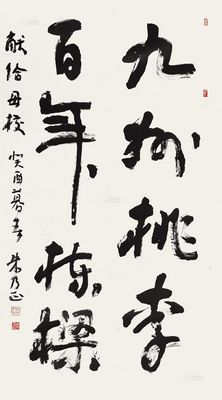 九州桃李
百年栋梁
献给母校 癸酉暮春 朱乃正